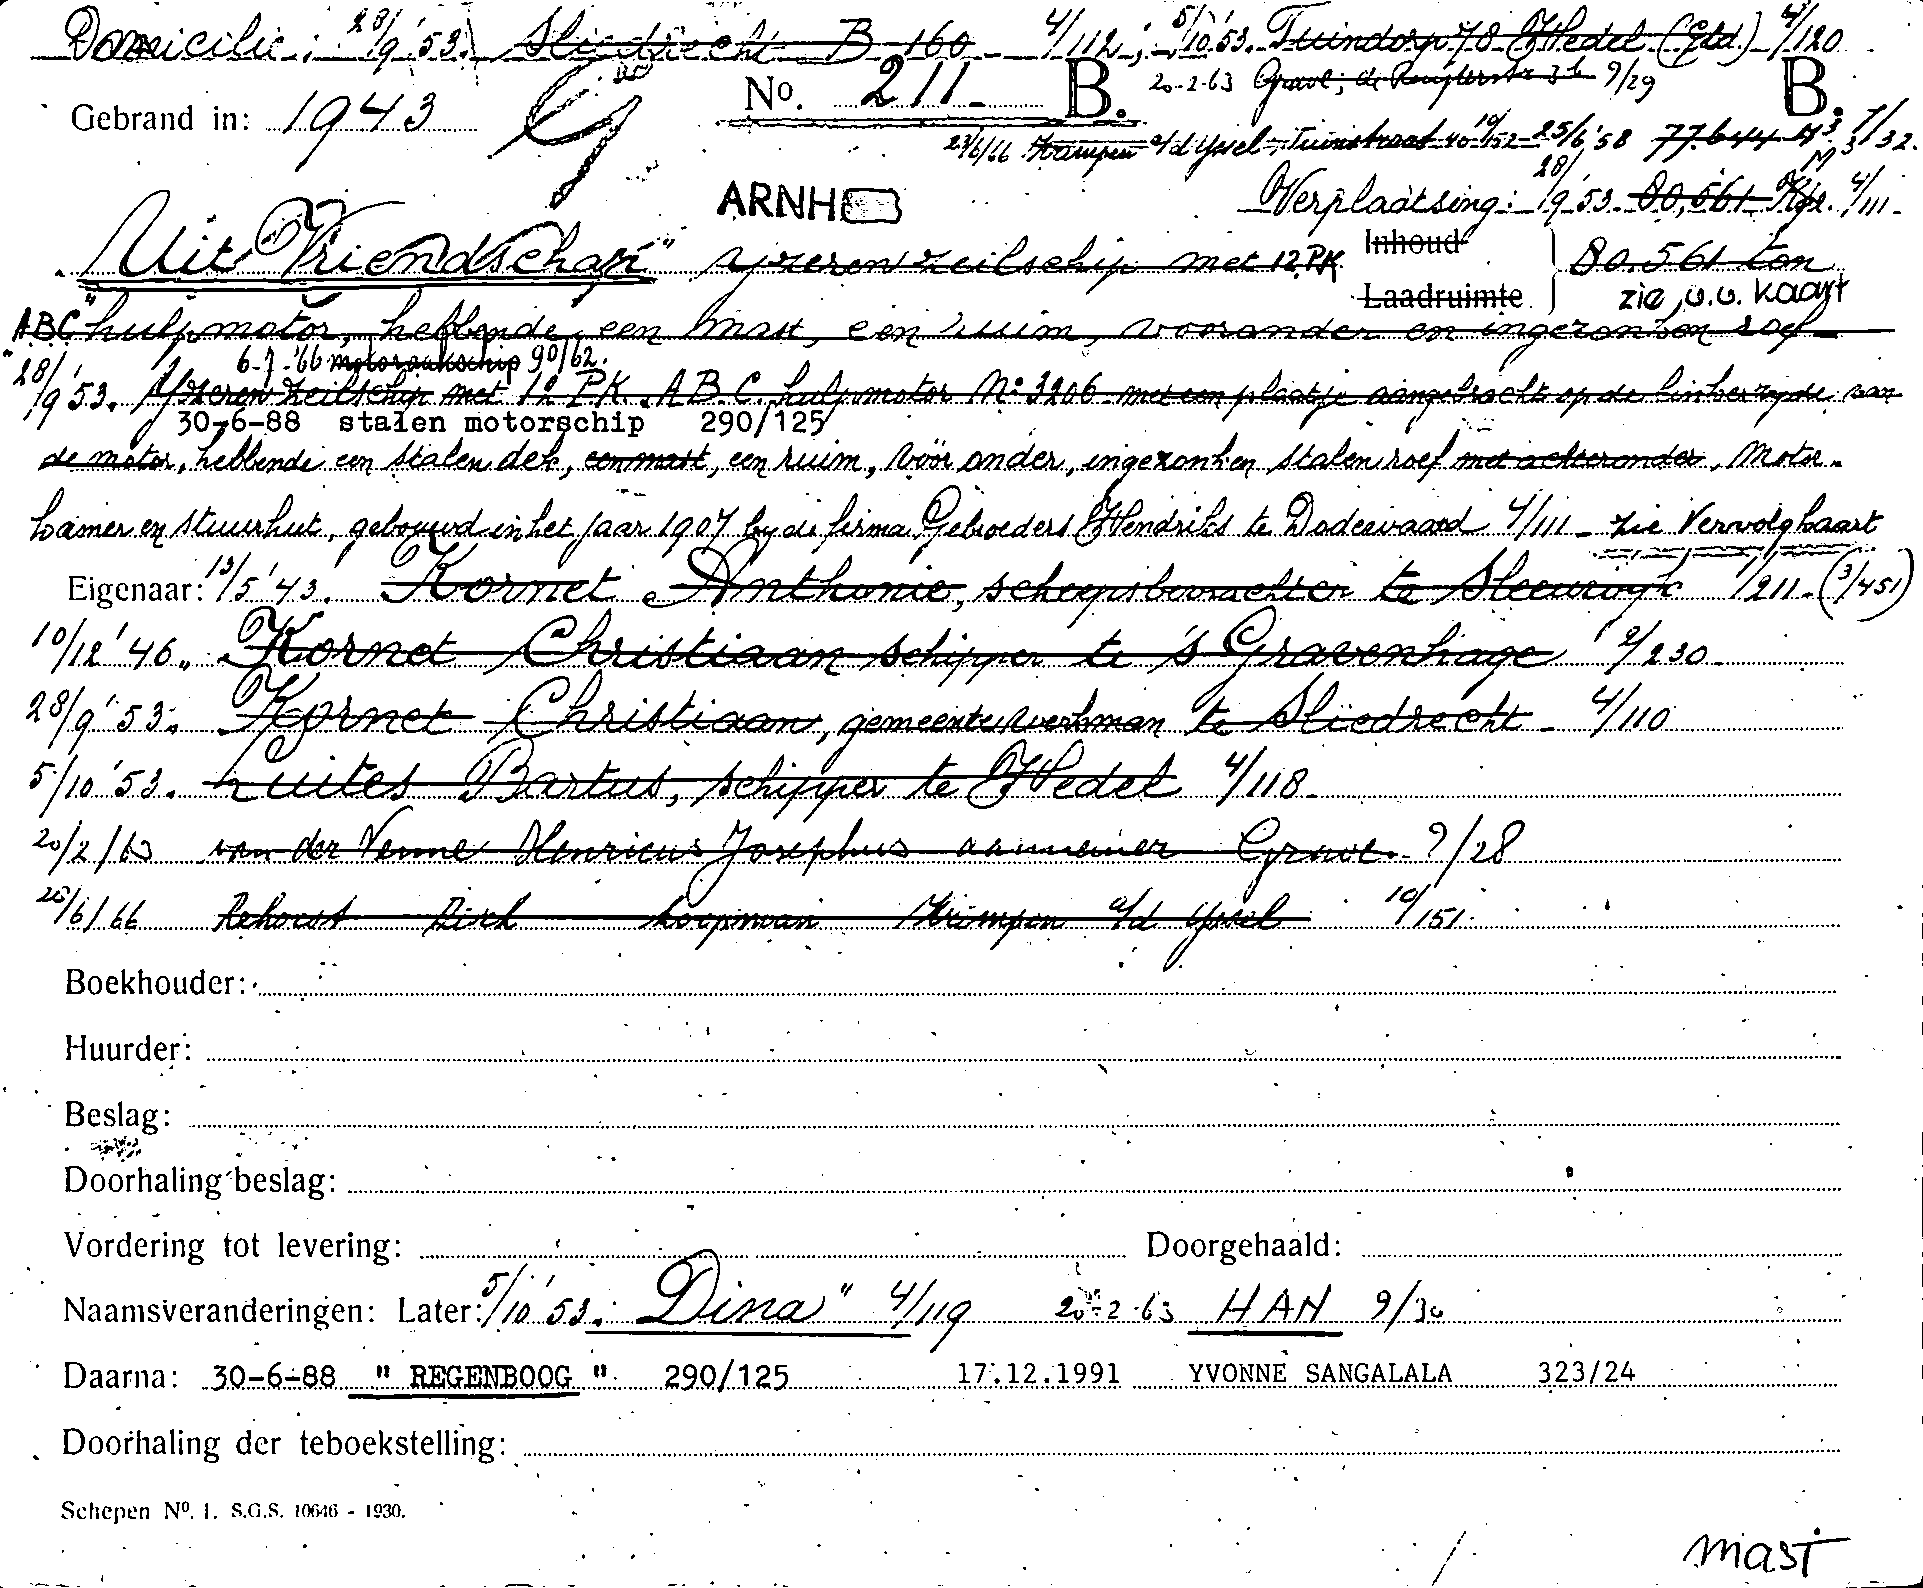 Domicilie: 28/9 '53. Sliedrecht B 160 4/112; 5/10 '53. Tuindorp 78 Hedel (Gld.) 4/120
Gebrand in: 1943 No. 211 B. 20-2-63 Grave; de Ruijterstr 31 9/29 B.
23/6/66 Krimpen a/d Yssel, Tuinstraat 40 10/152 25/6 '58 77.644 M3 7/32.
ARNH Verplaatsing: 28/9 '53. 80,561 M3 4/111
"Uit Vriendschap" ijzeren zeilschip met 12 P.K. Inhoud 80.561 ton
Laadruimte zie v.v. kaart
"ABC" hulpmotor, hebbende een mast, een ruim, vooronder en ingezonken roef
6-7-'66 motorzeilschip 90/62.
28/9 '53. IJzeren zeilschip met 12 P.K. A.B.C. hulpmotor No 3206 met een plaatje aangebracht op de linkerzijde van
30-6-88 stalen motorschip 290/125
de motor, hebbende een stalen dek, een mast, een ruim, vóór onder, ingezonken stalen roef met achteronder, motor-
kamer en stuurhut, gebouwd in het jaar 1907 bij de firma Gebroeders Hendriks te Dodewaard 4/111 - zie Vervolgkaart
Eigenaar: 13/5 '43. Kornet Anthonie, scheepsbevrachter te Sleeuwijk 1/211. (3/451)
10/12 '46. Kornet Christiaan schipper te 's Gravenhage 2/230
28/9 '53. Kornet Christiaan, gemeentewerkman te Sliedrecht 4/110
5/10 '53. Luites Bartus, schipper te Hedel 4/118
20/2/63 van der Venne Henricus Josephus aannemer Grave. 9/28
23/6/66 Rehorst Dirk koopman Krimpen a/d Yssel 10/151
Boekhouder:
Huurder:
Beslag:
Doorhaling beslag:
Vordering tot levering: Doorgehaald:
Naamsveranderingen: Later: 5/10 '53. "Dina" 4/119 20-2-63 HAN 9/30
Daarna: 30-6-88 " REGENBOOG " 290/125 17.12.1991 YVONNE SANGALALA 323/24
Doorhaling der teboekstelling:
Schepen No. 1. S.G.S. 10646 - 1930.
mast